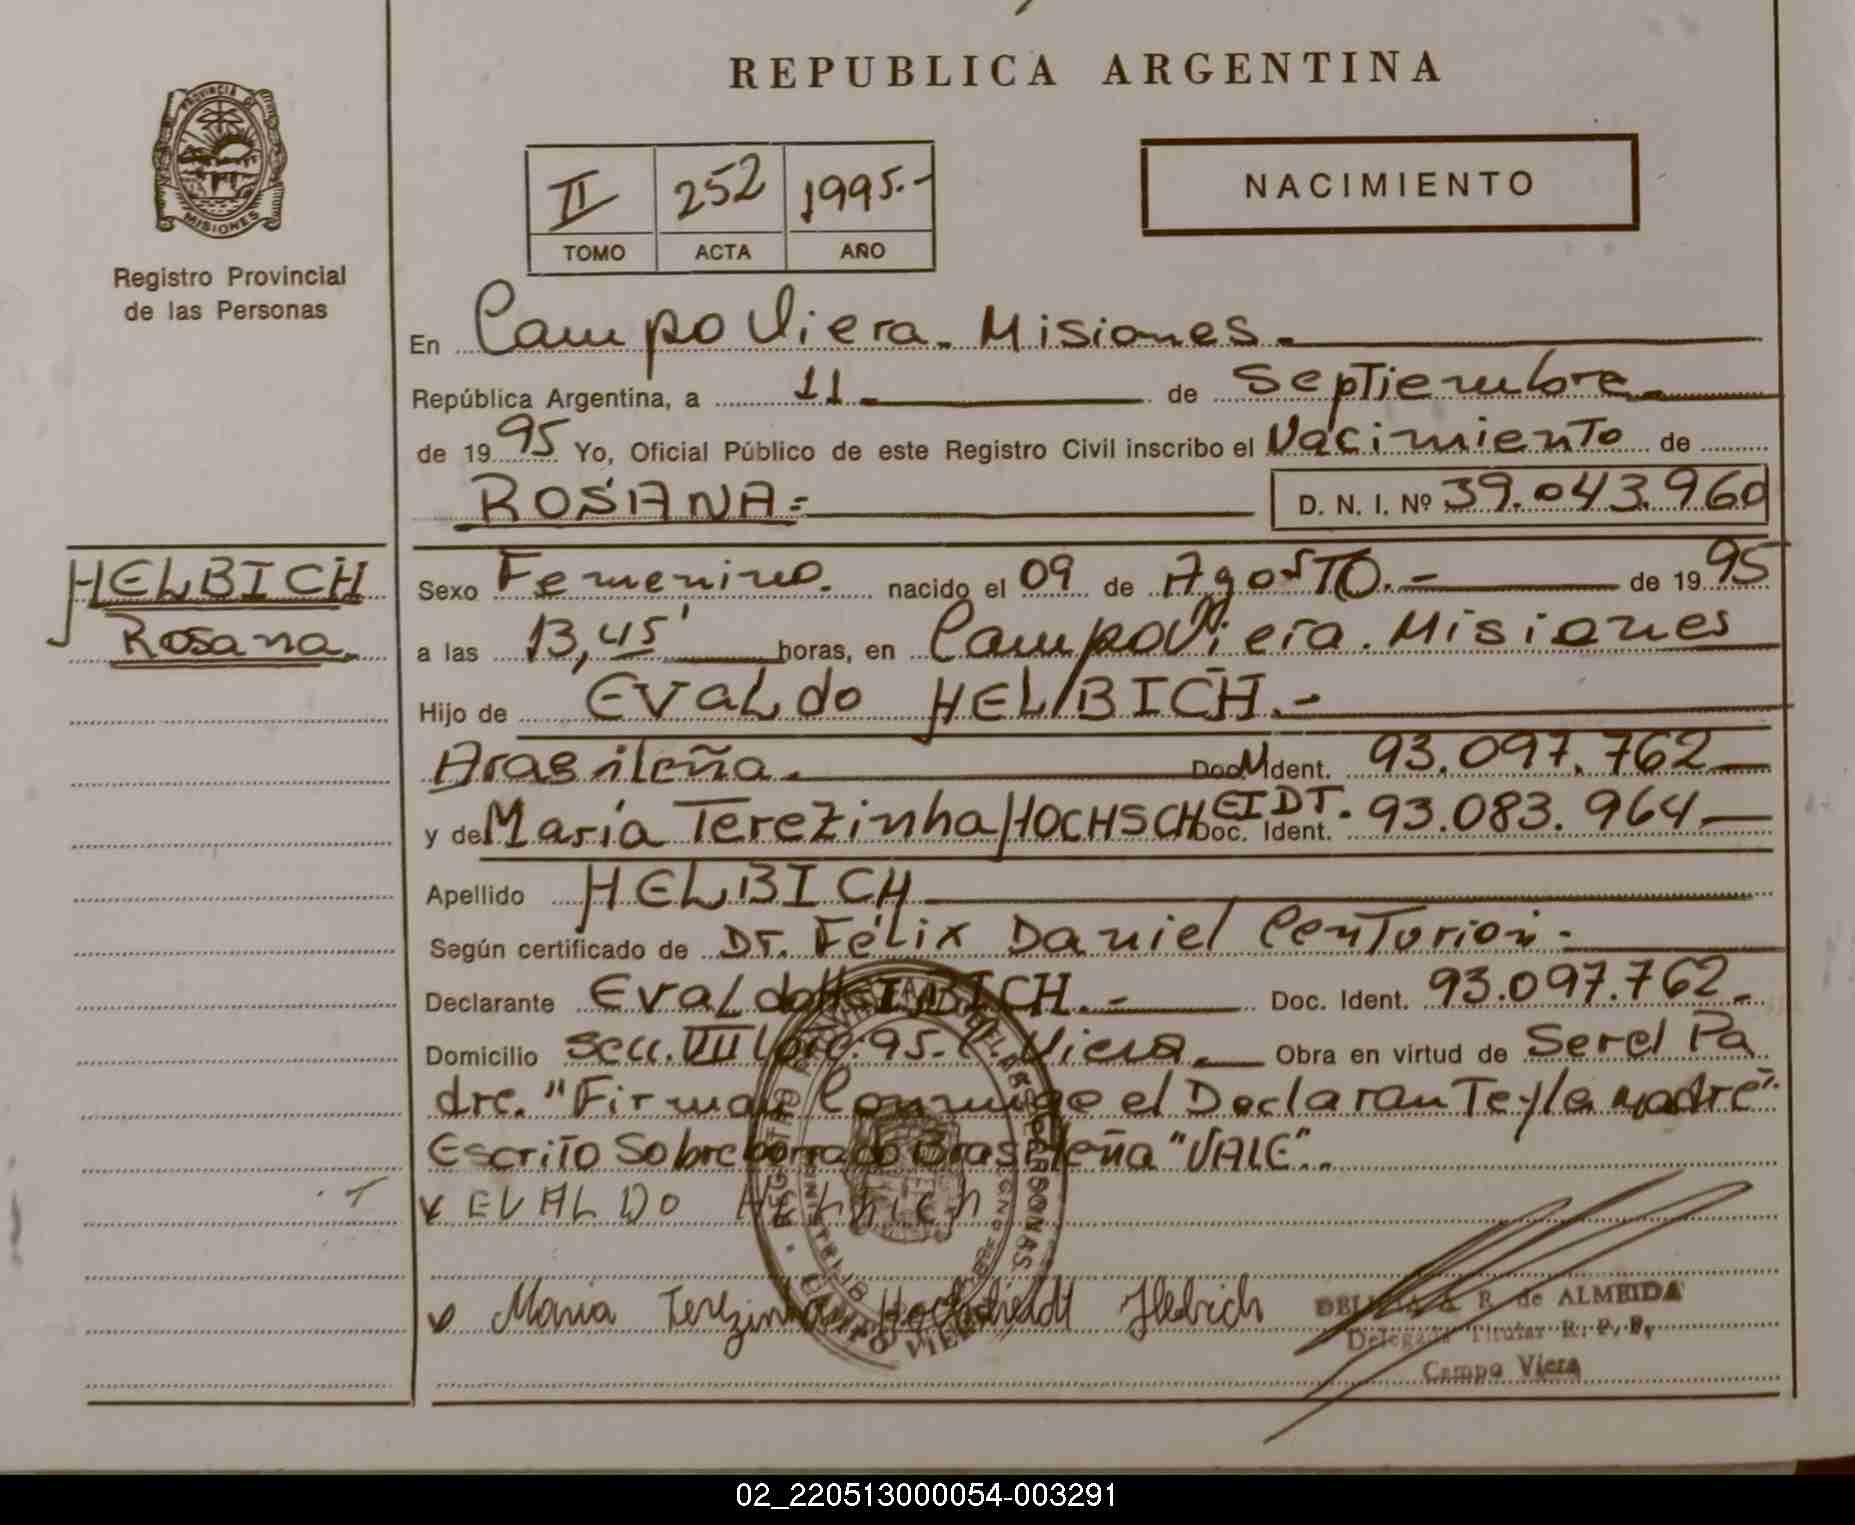 REPUBLICA ARGENTINA
PROVINCIA DE
MISIONES
Registro Provincial
de las Personas
II 252 1995.-
TOMO ACTA AÑO
NACIMIENTO
En Campo Viera. Misiones.
República Argentina, a 11 de Septiembre
de 1995 Yo, Oficial Público de este Registro Civil inscribo el Nacimiento de
ROSANA= D. N. I. Nº 39.043.960
HELBICH
Rosana
Sexo Femenino. nacido el 09 de Agosto.- de 1995
a las 13,45' horas, en Campo Viera. Misiones
Hijo de EVALdo HELBICH.-
Brasileña. Doc. Ident. 93.097.762
y de María Terezinha HOCHSCHEIDT. Doc. Ident. 93.083.964
Apellido HELBICH
Según certificado de Dr. Félix Daniel Centurion.
Declarante Evaldo HELBICH.- Doc. Ident. 93.097.762
Domicilio Secc. VIII Lote 95. C. Viera. Obra en virtud de Ser el Pa
dre. "Firman Conmigo el Declarante y la madre".
Escrito Sobreborrado Brasileña "VALE".
EVALDO HELBICH
Maria Terezinha Hochscheidt Helbich
R. de ALMEIDA
Delegada Titular R. P. P.
Campo Viera
02_220513000054-003291